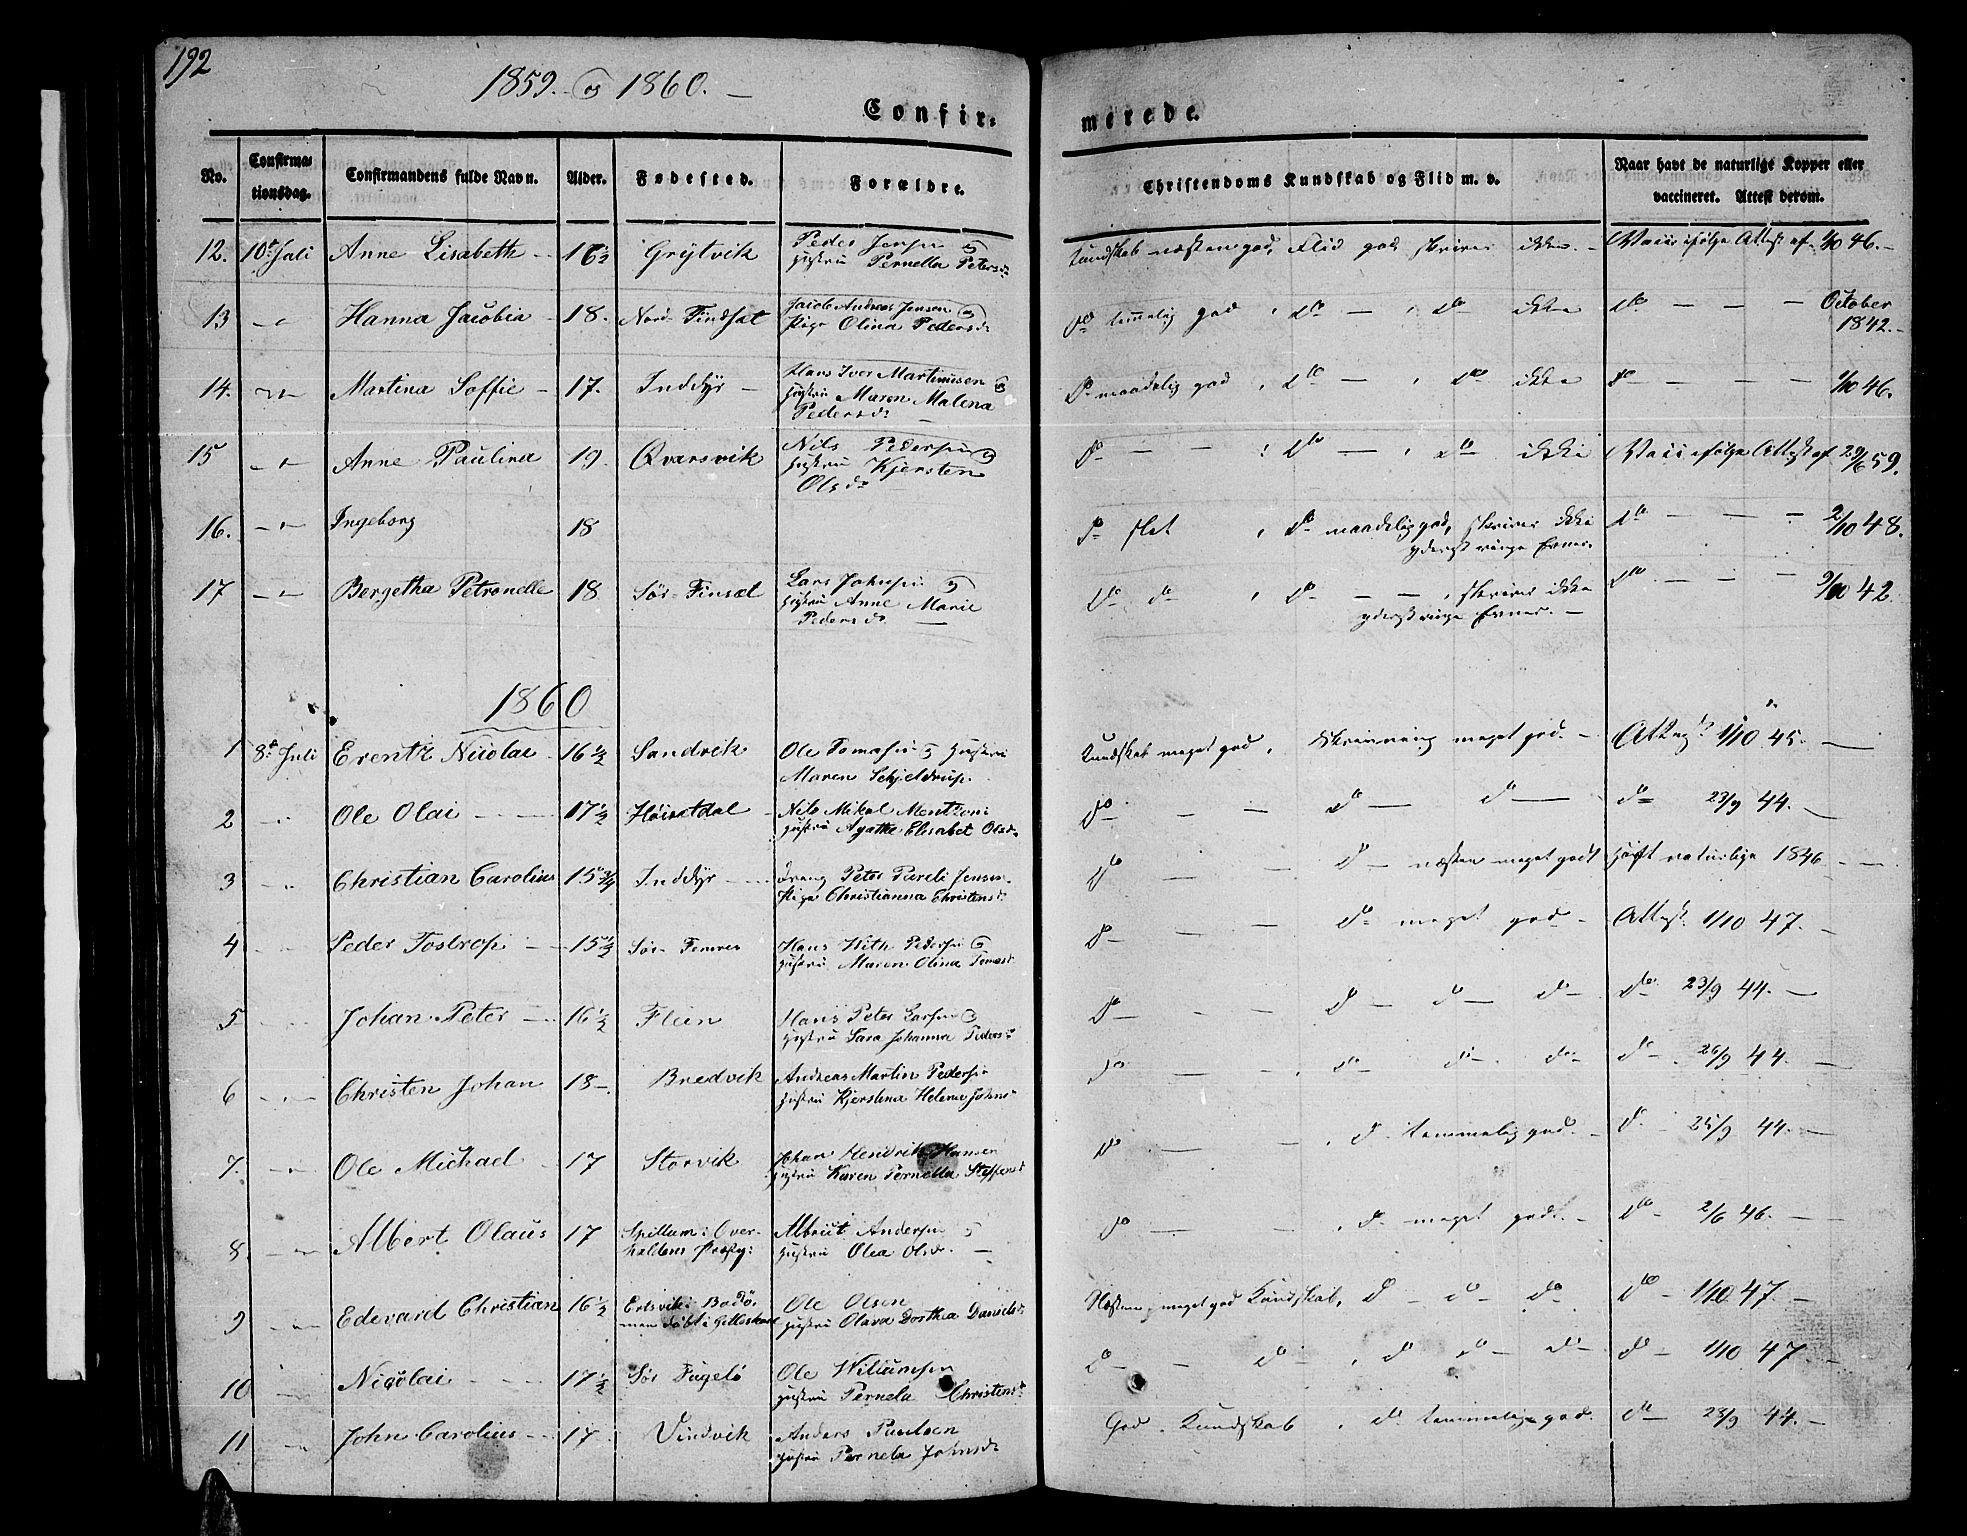 192
1859. og 1860. —
Confir-
merede.
No.
Confirma-
tionsdag.
Confirmandens fulde Navn.
Alder.
Fødested.
Forældre.
Christendoms Kundskab og Flid m. v.
Naar havt de naturlige Kopper eller
vaccineret. Attest derom.
12. 10de Juli Anne Lisabeth 16½ Grytvik Peder Jensen og
Hustru Pernella Petersdr
Kundskab næsten god, Flid god skriver ikke. — Vacc ifølge Attest af 1/10 46. —
13 Hanna Jacobia 18. Nord Findset Jacob Andreas Jensen og
Pige Olina Pedersdr
do temmelig god, do — , do ikke do — — — October
1842. —
14. Martina Soffie 17. Inddyr Hans Iver Martinusen og
Hustru Maren Malena
Pedersdr
do maadelig god, do — , do ikke do — — — 1/10 46.
15 Anne Paulina 19. Qvarsvik Nils Pedersen og
Hustru Kjersten
Olsdr
do — — — , do — , do ikke Vacc ifølge Attest af 29/6 59.
16. Ingeborg 18
do slet , do maadelig god, skriver ikke
yderst ringe Evner. do — — — 2/10 48.
17 Bergetha Petronelle 18 Sør-Finset Lars Johnsen og
Hustru Anne Marie
Pedersdr —
do do , do — — , skriver ikke
yderst ringe Evner. — do — — — 9/10 42.
1860
1 8de Juli Erentz Nicolai 16½ Sandvik Ole Tomasen og Hustru
Maren Schjeldrup.
Kundskab meget god, Skrivning meget god. — 1/10 45. —
2 Ole Olai 17½ Nils Mikal Mentzoni
Hustru Agathe Elisabet Olsdr
do — — do — do — do 23/9 44. —
3 Christian Carolius 15¾ Inddyr Dreng Peter Pareli Jensen
Pige Christianna Christensdr
do — — do — næsten meget godt Havt naturlige 1846 —
4 Peder Tostrop 15½ Sør- Hans Hith Pedersen og
Hustru Maren Olina Tomasdr
do — — do meget god — Attest 1/10 47. —
5 Johan Peter 16½ Flein Hans Peter Larsen og
Hustru Sara Johanna Pedersdr
do — — do — do — do — do 23/9 44. —
6 Christen Johan 18 — Bredvik Andreas Martin Pedersen
Hustru Kjerstina Helena Johnsdr
do — — do — do — do — do — 26/9 44. —
7. Ole Michael 17 Storvik Johan Hendrik Hansen
Hustru Karen Pernella Steffensdr
do — — , do temmelig god. — do — 25/9 44. —
8. Albert Olaus 17 Spillum i Over-
haldens Præstg: Albrikt Andersen og
Hustru Olea Olsdr. —
do — — , do meget godt. — do — 2/6 46. —
9 Edevard Christian 16½ Ertsvik i Bodø,
men døbt i Gilleskaal Ole Olsen
Hustru Olava Dorthea Danielsdr
Næsten meget god Kundskab, do — do — do do — 1/10 47 —
10 Nicolai 17½ Sør Fugelø Ole Wiliumsen
Hustru Pernela Christensdr
do — — do — , do do — do — do — 1/10 47. —
11 John Carolius 17 Vindvik Anders Paulsen
Hustru Pernela Johnsdr
God Kundskab , do temmelig god. do — 28/9 44. —